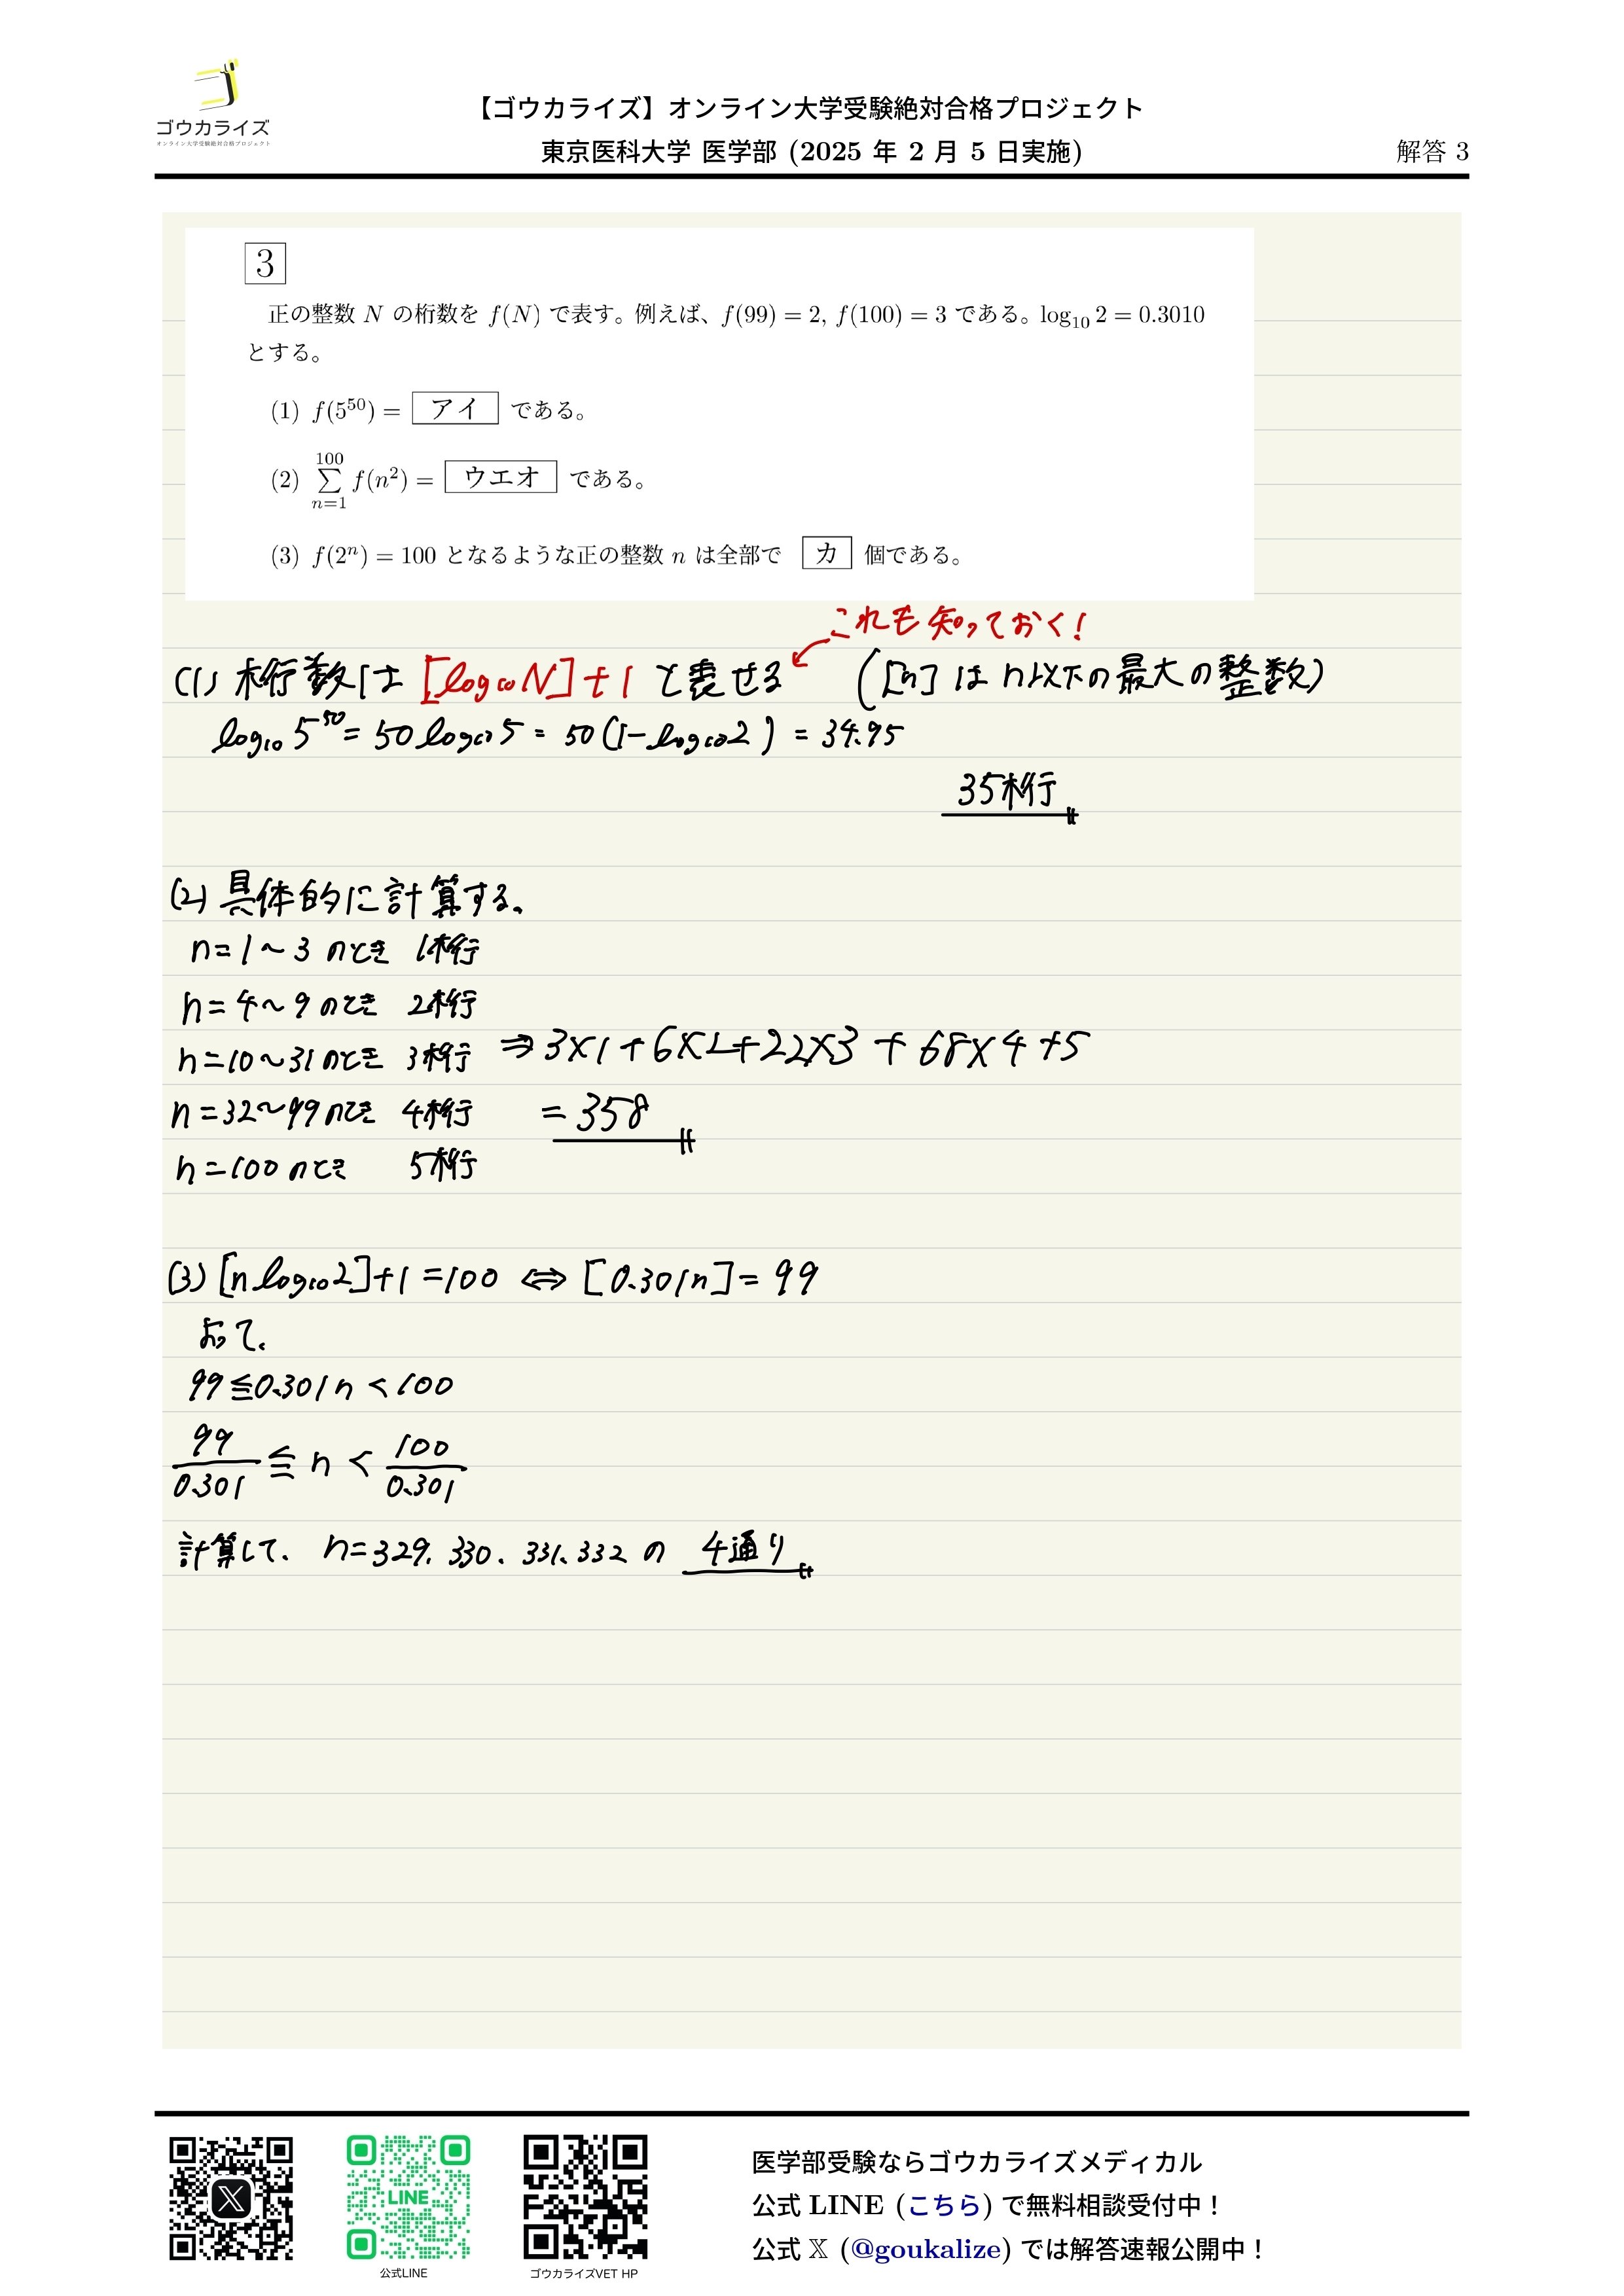 ゴウカライズ
オンライン大学受験絶対合格プロジェクト
【ゴウカライズ】オンライン大学受験絶対合格プロジェクト
東京医科大学 医学部 (2025 年 2 月 5 日実施)
解答 3
3
正の整数 N の桁数を f(N) で表す。例えば、f(99) = 2, f(100) = 3 である。log₁₀ 2 = 0.3010
とする。
(1) f(5⁵⁰) = アイ である。
(2) ∑_{n=1}^{100} f(n²) = ウエオ である。
(3) f(2ⁿ) = 100 となるような正の整数 n は全部で カ 個である。
これも知っておく!
(1) 桁数は [log₁₀N]+1 と表せる ([n] は n以下の最大の整数)
log₁₀ 5⁵⁰ = 50 log₁₀5 = 50(1-log₁₀2) = 34.95
35桁
(2) 具体的に計算する。
n=1～3 のとき 1桁
n=4～9 のとき 2桁
n=10～31 のとき 3桁 ⇒ 3×1+6×2+22×3+68×4+5
n=32～99 のとき 4桁 = 358
n=100 のとき 5桁
(3) [n log₁₀2]+1=100 ⇔ [0.301n]=99
よって、
99≦0.301n<100
99/0.301 ≦ n < 100/0.301
計算して、n=329、330、331、332 の 4通り
LINE
公式LINE
ゴウカライズVET HP
医学部受験ならゴウカライズメディカル
公式 LINE (こちら) で無料相談受付中！
公式 𝕏 (@goukalize) では解答速報公開中！